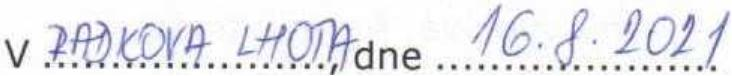 V ŘADKOVA LHOTA, dne 16.8.2021